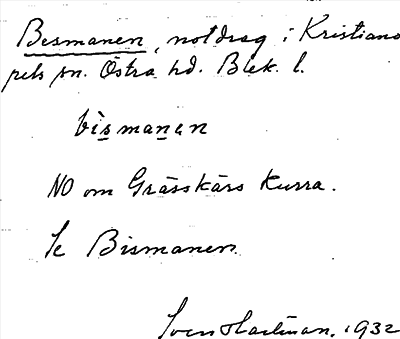 Besmanen, notdrag i Kristiano
pels sn. Östra hd. Blek. l.
bìsmanen
NO om Grässkärs Kurra.
Se Bismanen
Sven Hartman, 1932